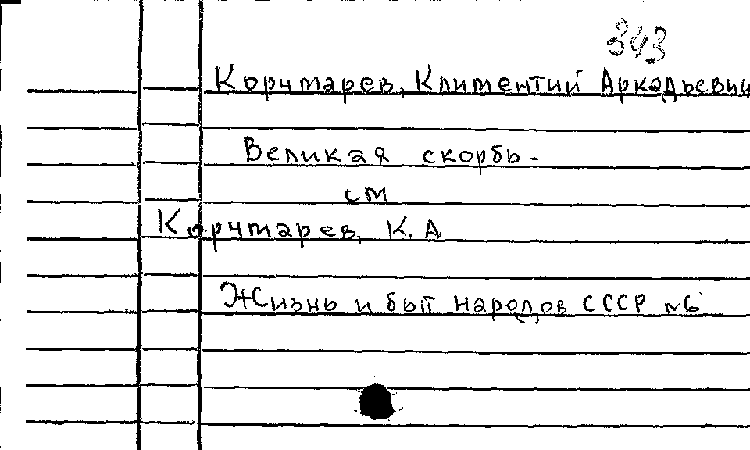 343
Корчмарев, Климентий Аркадьевич
Великая скорбь.
см
Корчмарев, К. А
Жизнь и быт народов СССР №6